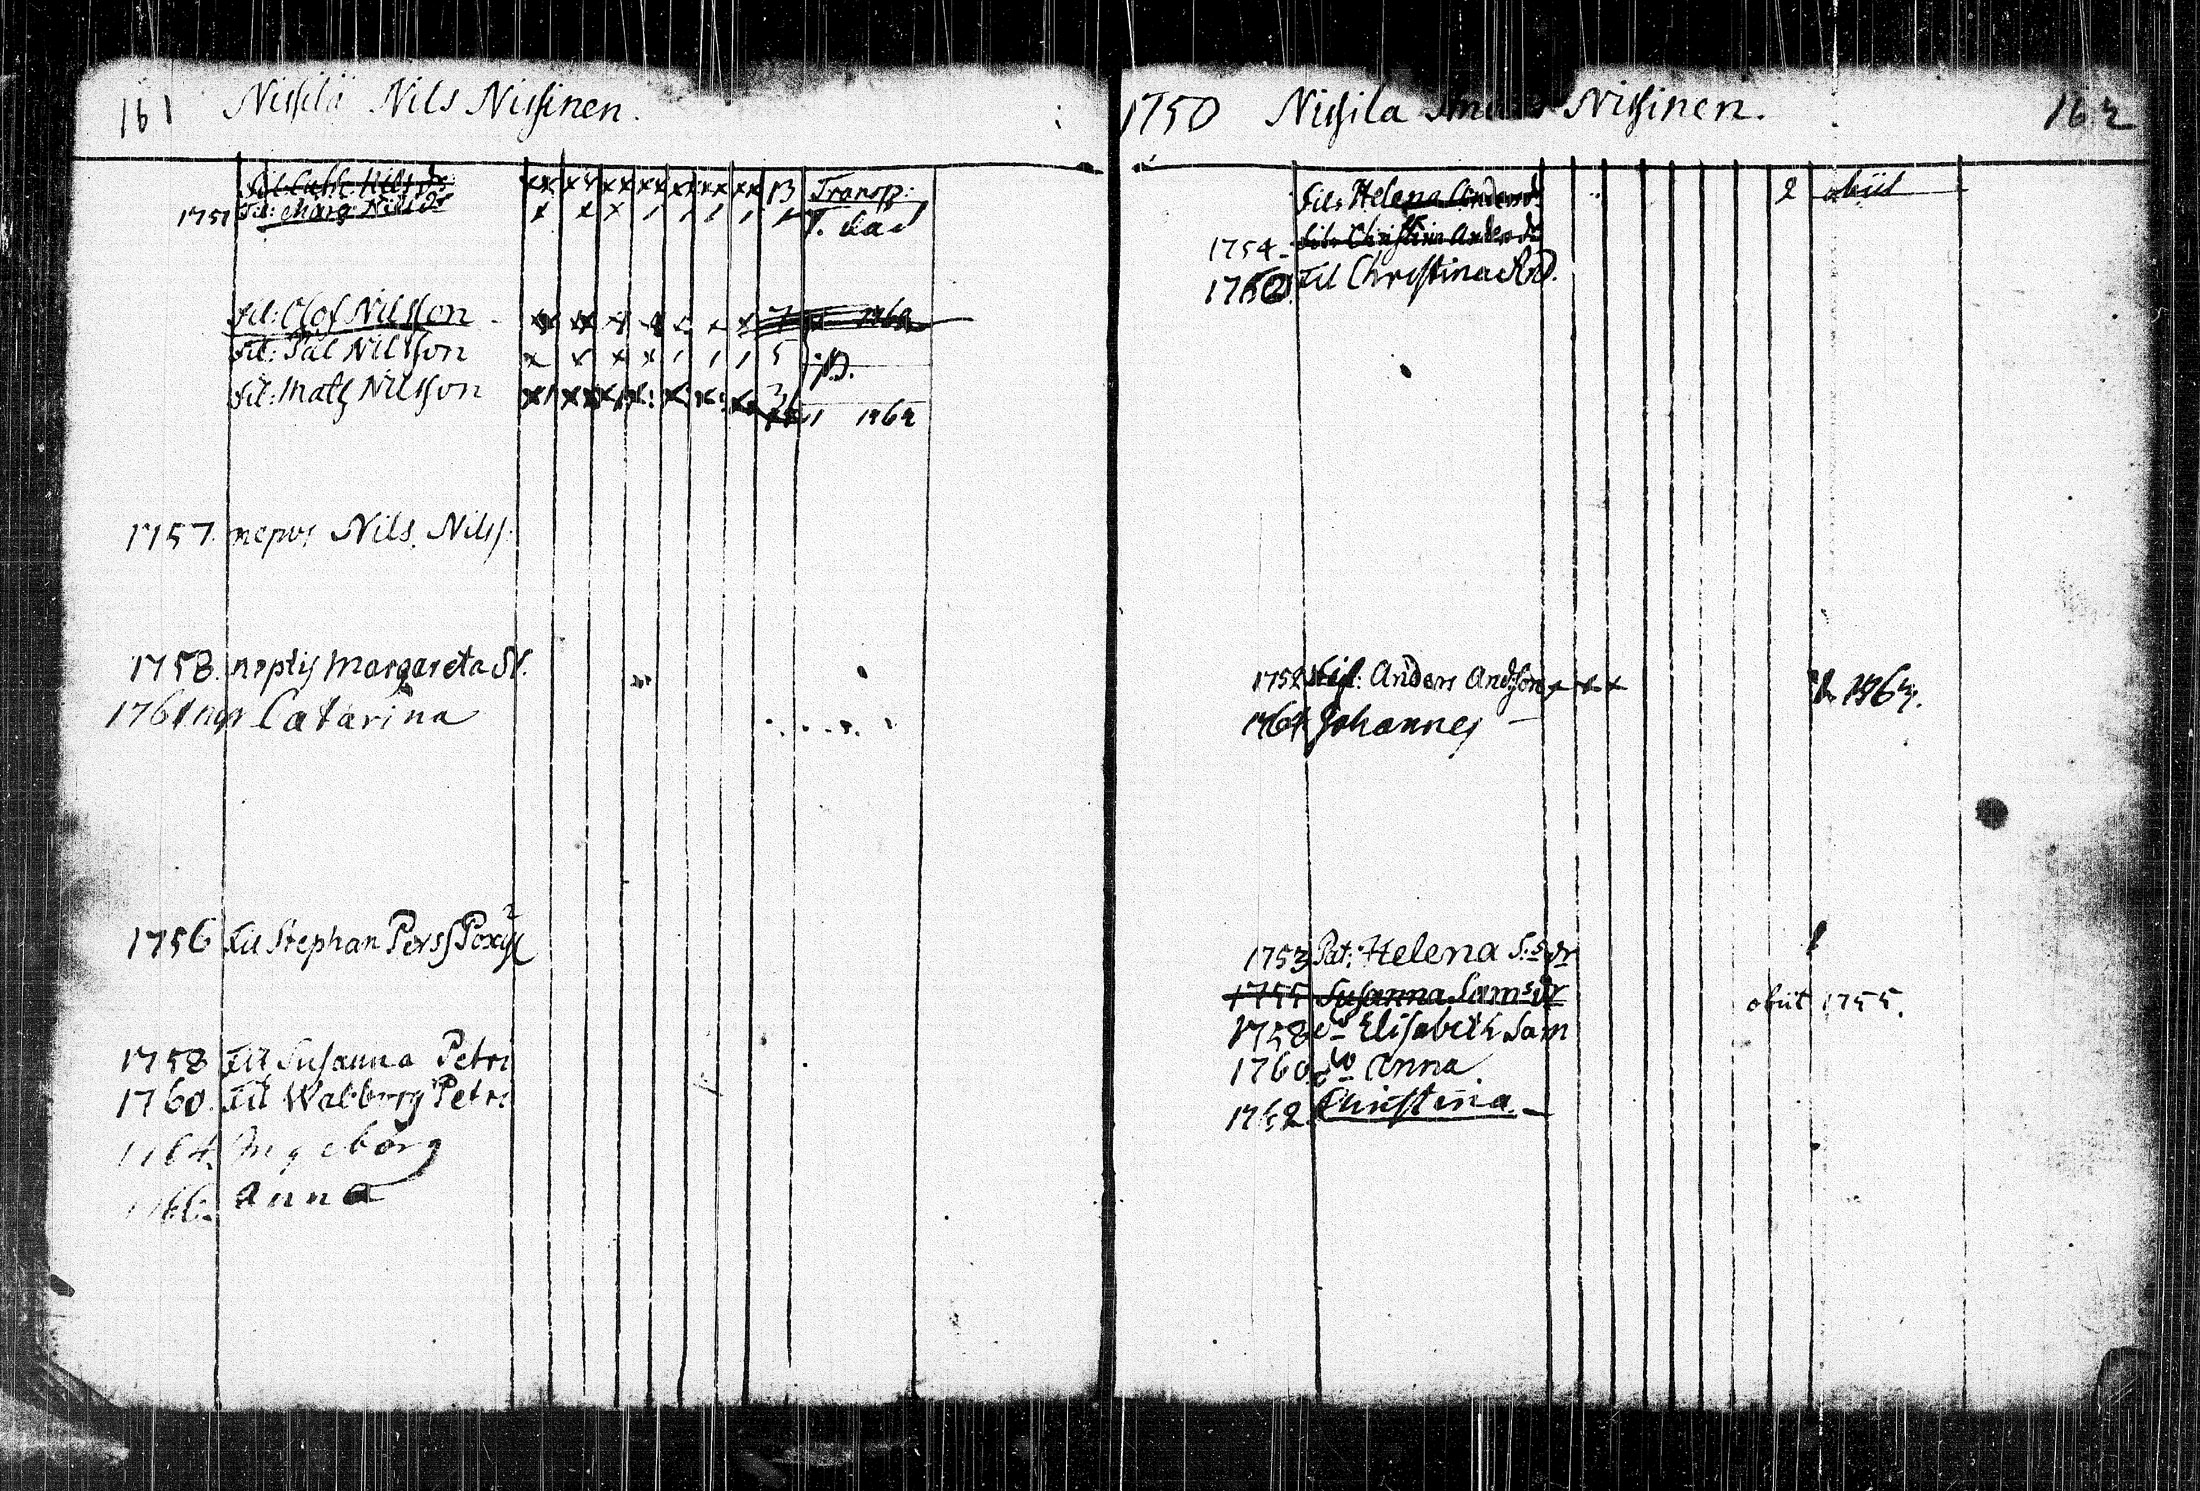 161 Nissilä Nils Nissinen.
Fil: Cath: Nilsdr xx xx xx xx xx xx xx 13 Transp:
1751 Fil: Marg: Nilsdr x x x 1 1 1 1
Fil: Olof Nilsson 1762
Fil: Pål Nilsson x v x x 1 1 1 5
Fil: Mats Nilsson 1762
1757. nepos Nils. Nilss.
1758. neptis Margareta N.
1761 Catarina
1756 Fil Stephan Perss
1758 Fil Susanna Petri
1760. Fil Walborg Petri
1764. Ingeborg
1766. Anna
1750 Nissila Anders Nissinen. 162
Fil: Helena Andersdr 2 obiit
1754. Fil: Christin Andersdr
1760. Fil Christina AD.
1752 Fil: Anders Andsson x x x
1764 Johannes
1753 Helena S:s dr
1755 Susanna Sams dr obiit 1755.
1758 do Elisabeth Sam
1760. do Anna
Christina.